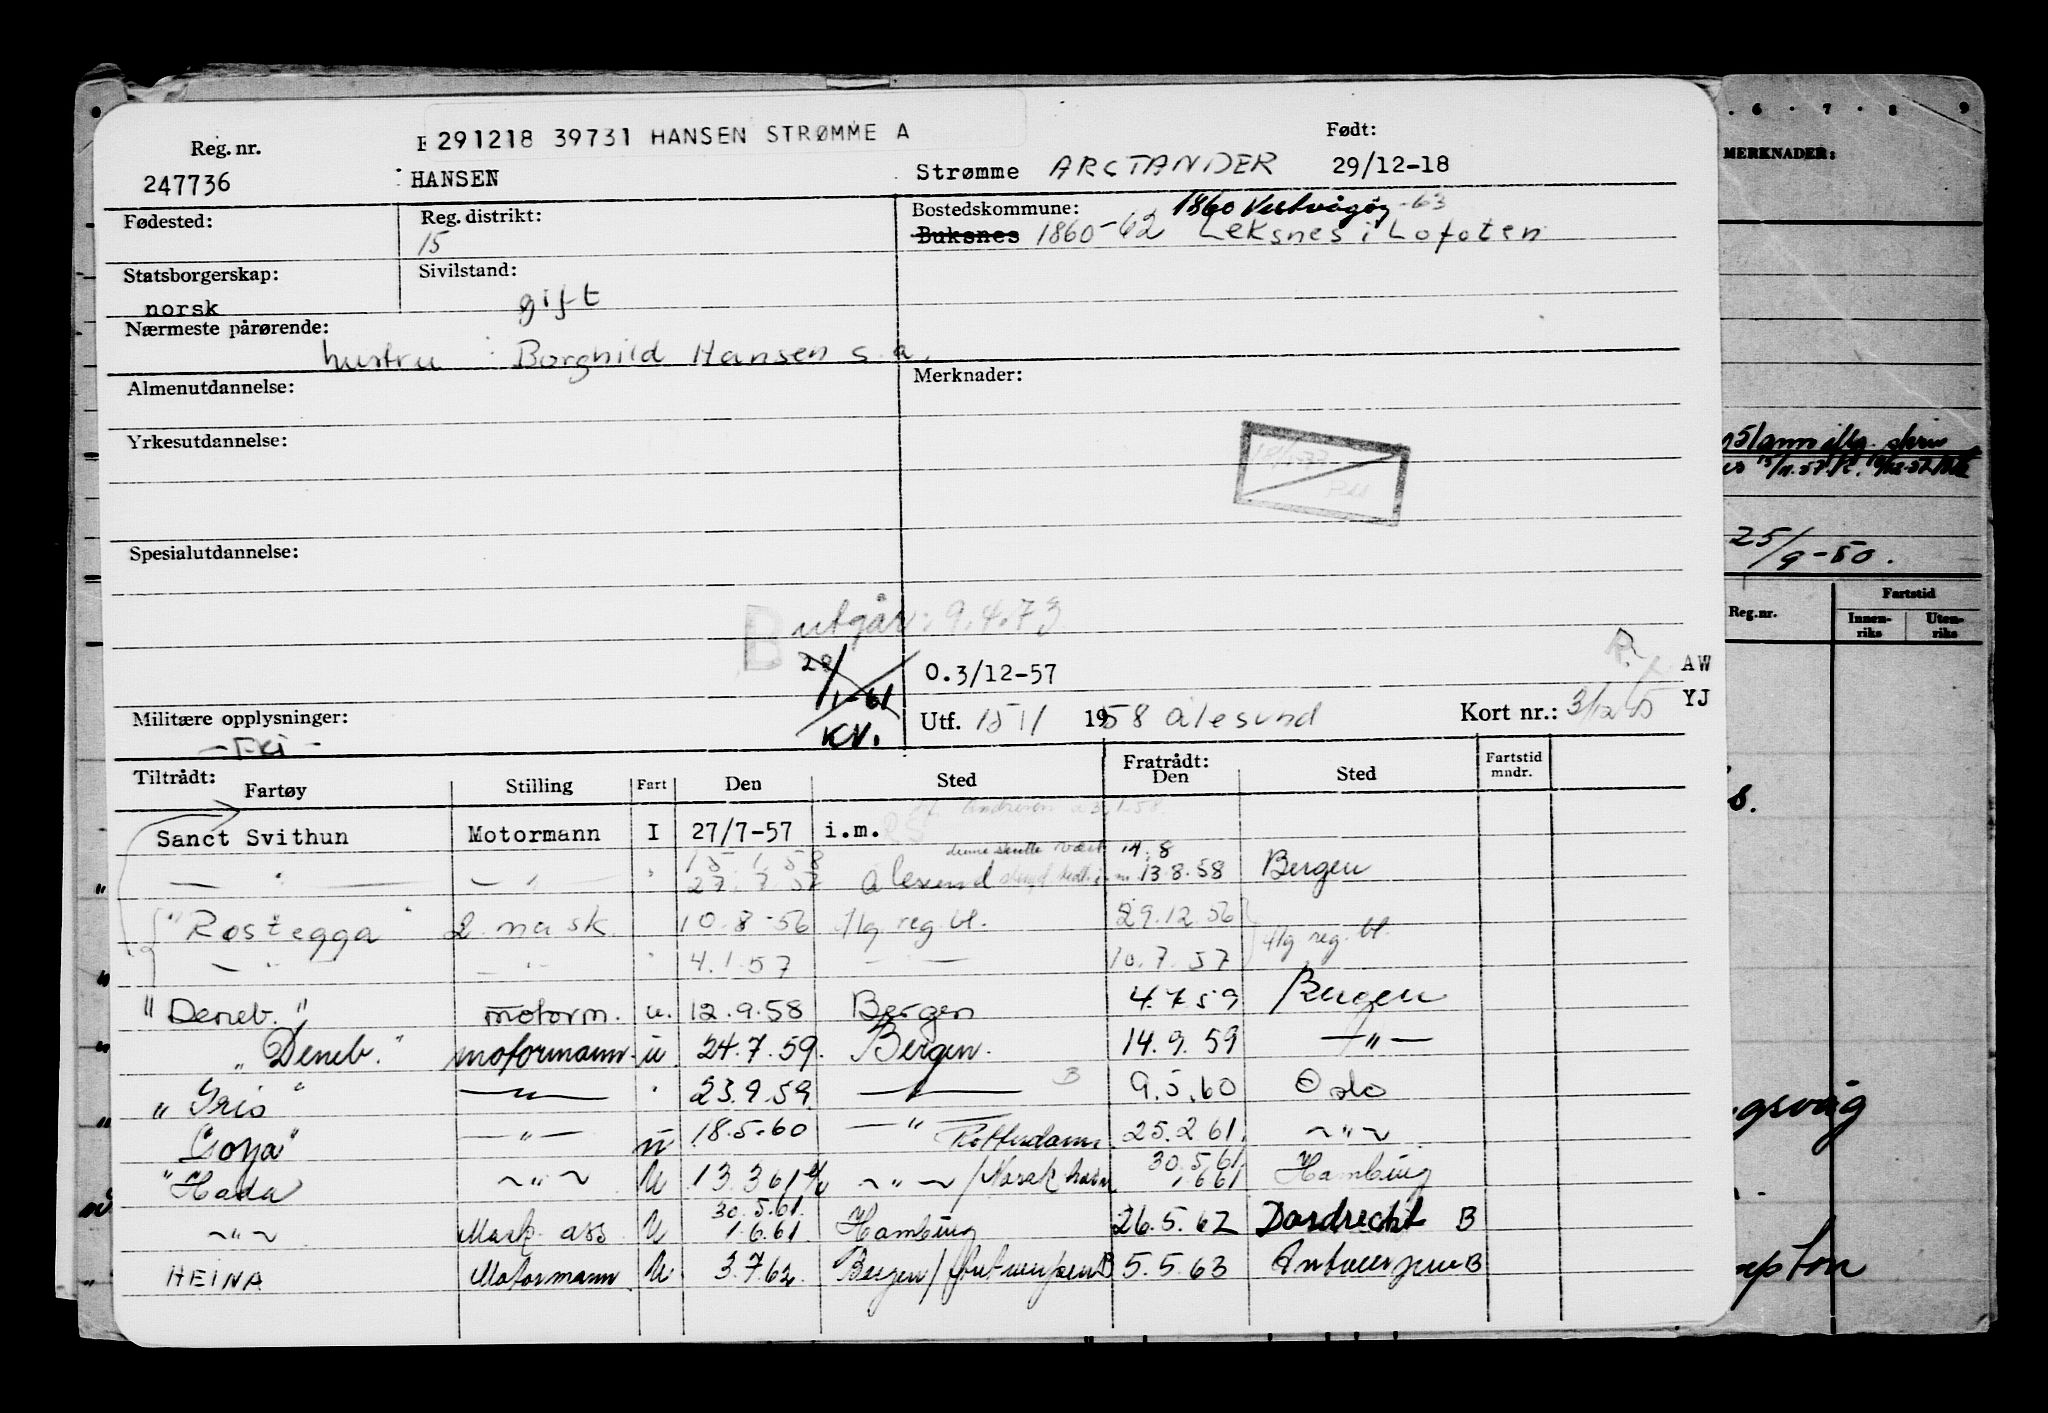 291218 39731 HANSEN STRØMME A
Reg. nr. Født:
247736 HANSEN Strømme ARCTANDER 29/12-18
Fødested: Reg. distrikt: Bostedskommune: 1860 Vestvågøy -63
15 Buksnes 1860-62 Leksnes i Lofoten
Statsborgerskap: Sivilstand:
norsk gift
Nærmeste pårørende:
hustru : Borghild Hansen s.a.
Almenutdannelse: Merknader:
Yrkesutdannelse:
Spesialutdannelse:
B utgår: 9.4.73
O.3/12-57 AW
Militære opplysninger: 1-61 KV. Utf. 15/1 1958 Ålesund Kort nr.: YJ
- Fri -
Tiltrådt: Fratrådt:
Fartøy Stilling Fart Den Sted Den Sted Fartstid mndr.
Sanct Svithun Motormann I 27/7-57 i.m.
15.1.58 denne skulle vært 14.8
— " — — " — " 27.7.57 Ålesund 13.8.58 Bergen
"Rostegga" 2 mask. 10.8-56 iflg reg. bl. 29.12.56 iflg reg. bl.
— " — — " — " 4.1.57 — — 10.7.57
"Deneb." motorm. u. 12.9.58 Bergen 4.7.59 Bergen
"Deneb." motormann. u. 24.7.59. Bergen. 14.9.59 — " —
"Iris" — " — " 23.9.59. — " — B 9.5.60 Oslo
Goya" — " — u 18.5.60 — " — Rotterdam 25.2.61. ~ " ~
"Hada ~ " ~ U 13.3.61 ~ " ~ / 30.5.61. 1.6.61 Hamburg
~ " ~ Mask. ass. U 30.5.61. 1.6.61. Hamburg 26.5.62 Dordrecht B
HEINA Motormann U 3.7.62. Bergen/Antwerpen B 5.5.63 Antwerpen B
6 7 8 9
MERKNADER:
25/9-50.
Reg.nr. Fartstid
Innenriks Utenriks